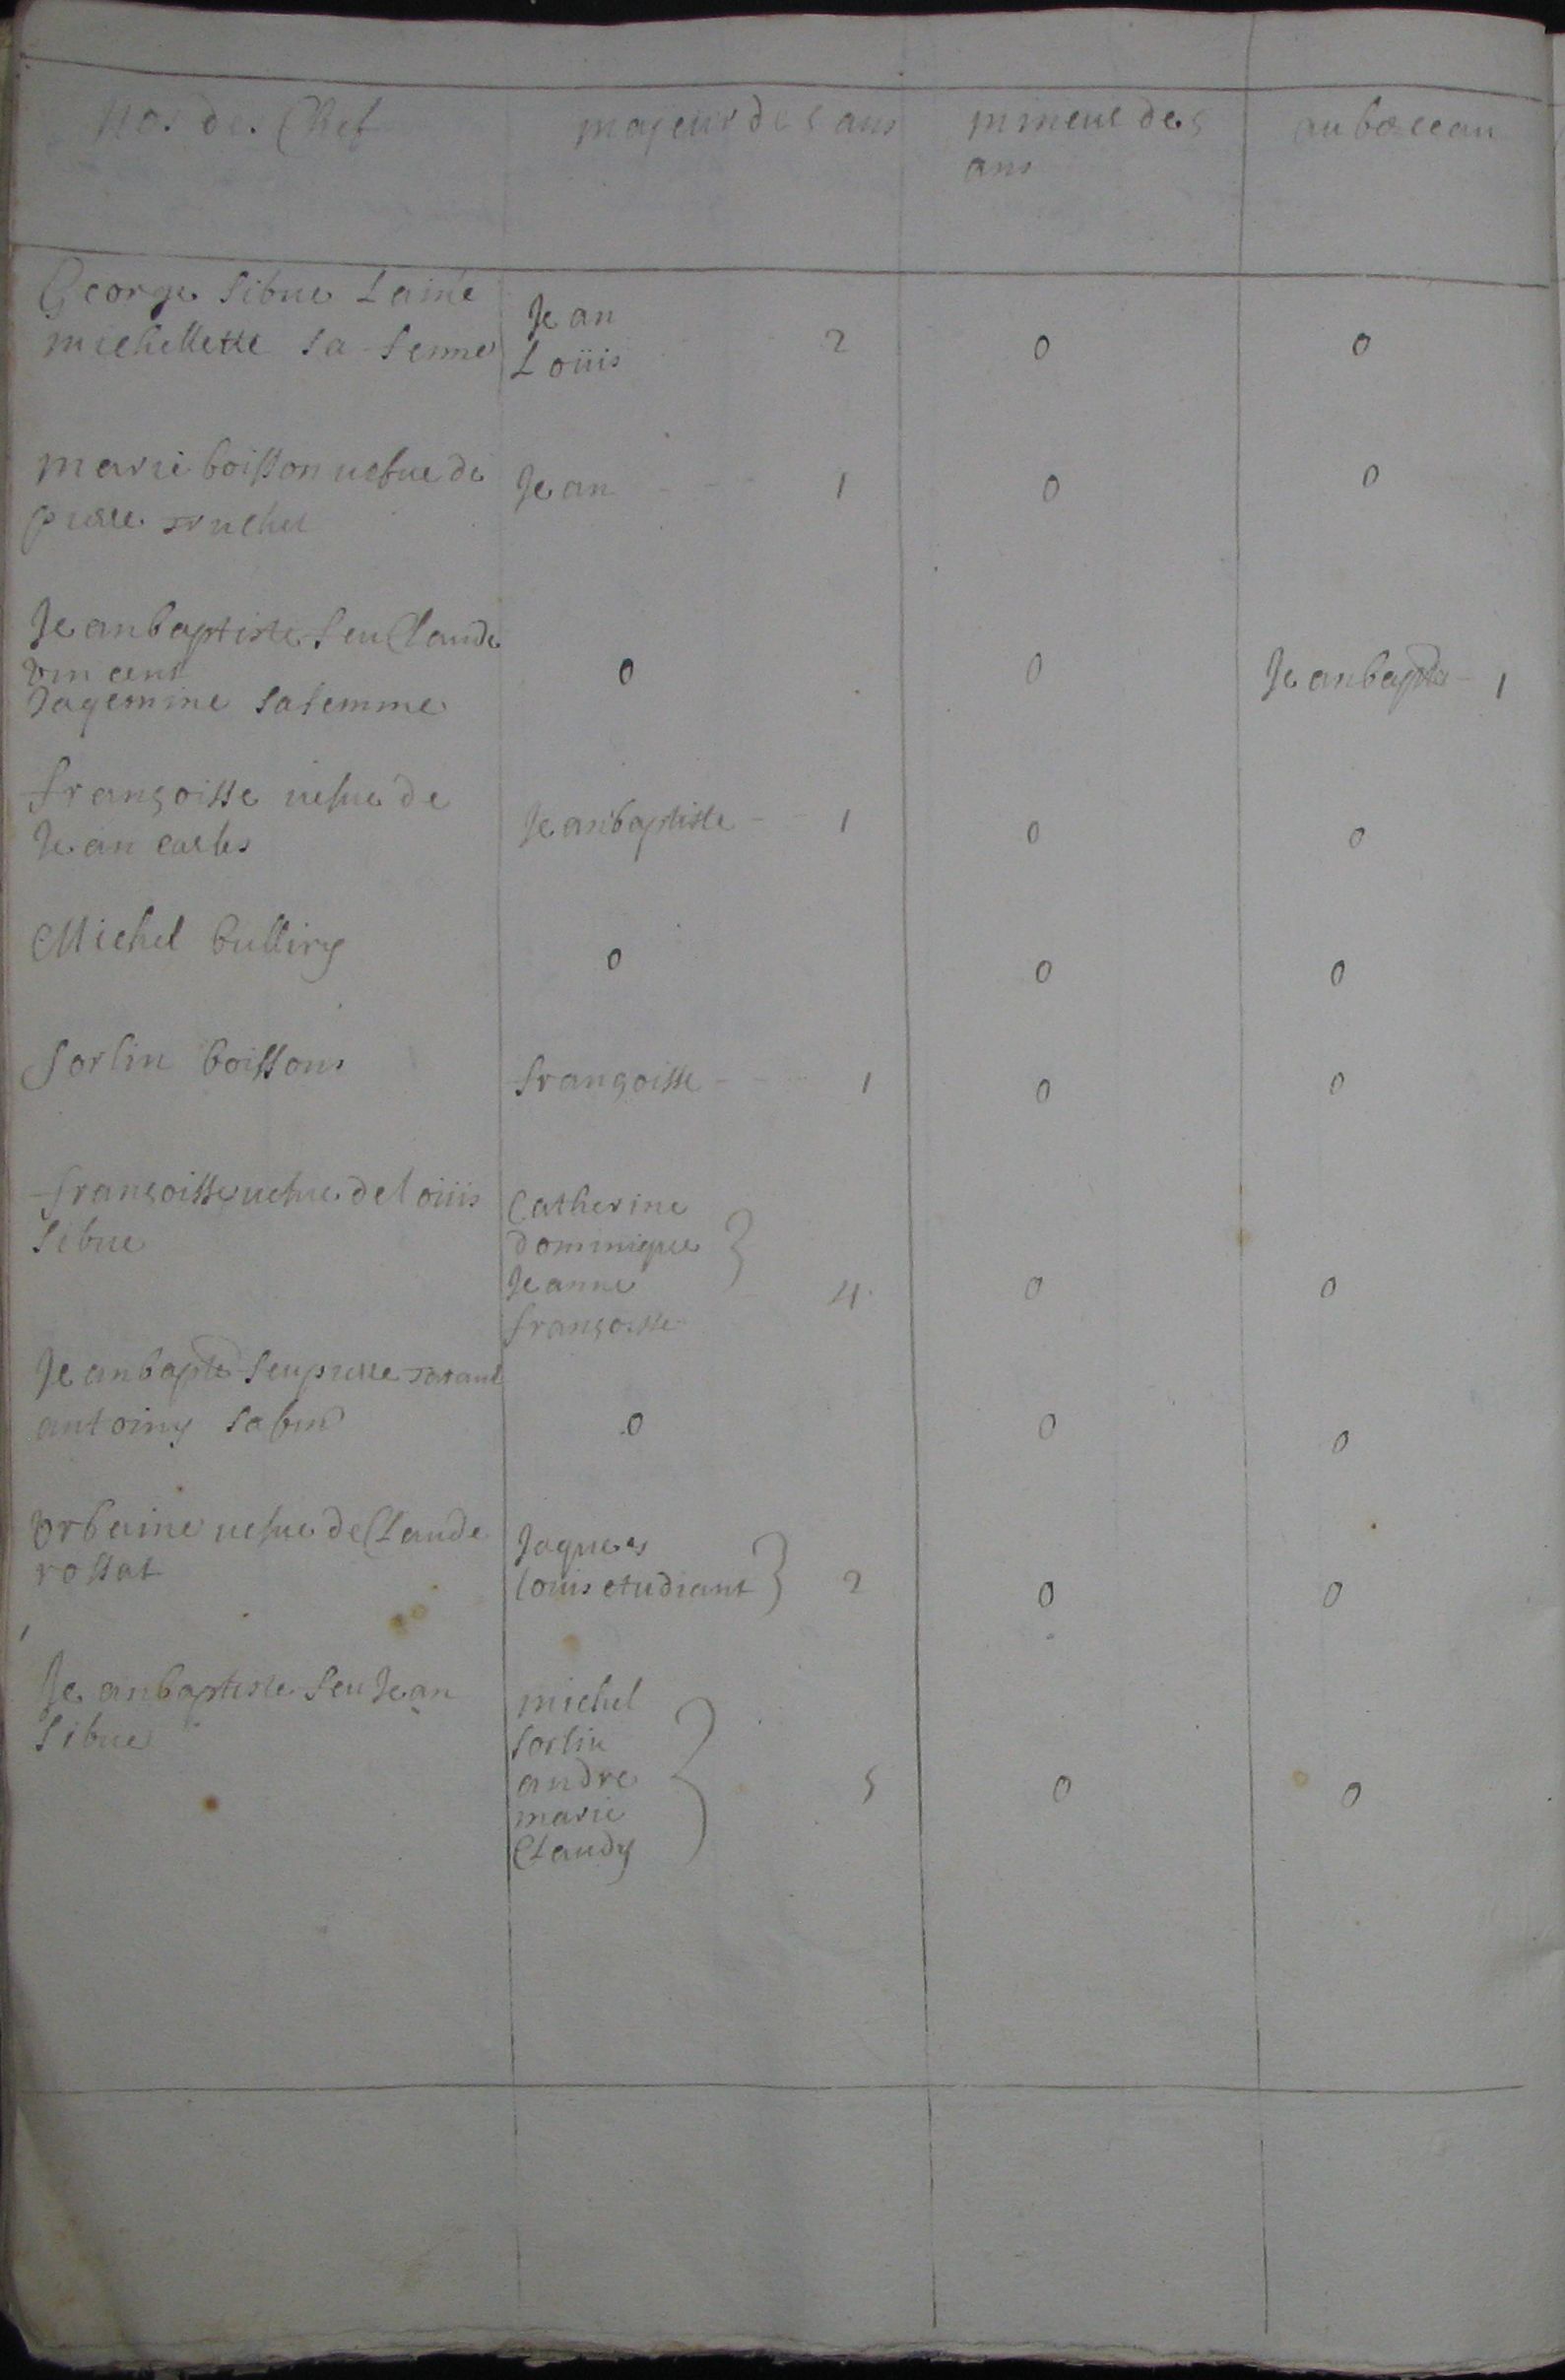 Nos des Chef majeur de 5 ans mineur de 5 au berceau
ans
George Sibue Lainé
michellette sa femme
Jean
Loüis 2 0 0
marie boisson uefue de Jean 1 0 0
pierre truchet
Jeanbaptiste feu Claude
vincent 0 0 Jeanbapte 1
Jaqemine sa femme
françoisse uefue de
Jean carles Jeanbaptiste 1 0 0
Michel bulliny 0 0 0
Sorlin boissons françoisse 1 0 0
françoisse uefue de loüis Catherine
Sibue dominique
Jeanne 4 0 0
françoisse
Jeanbapte feu pierre
antoiny sa fme 0 0 0
Vrbaine uefue de Claude Jaques
rossat louis etudiant 2 0 0
Jeanbaptiste feu Jean michel
Sibue sorlin
andre 5 0 0
marie
Claudy